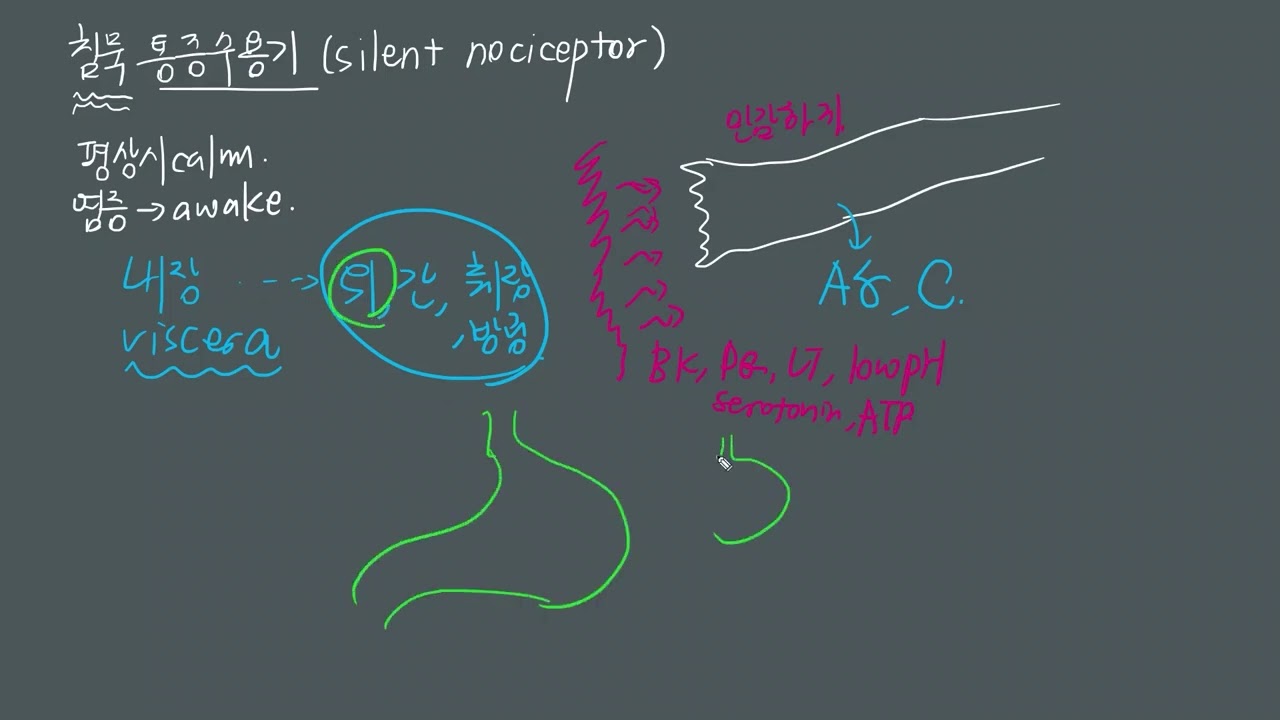 침묵 통증수용기 (silent nociceptor)
평상시 calm.
염증 → awake.
내장 ---→ 위, 간, 췌장
, 방광
viscera
민감하게
Aδ, C.
BK, PG, LT, low pH
serotonin, ATP